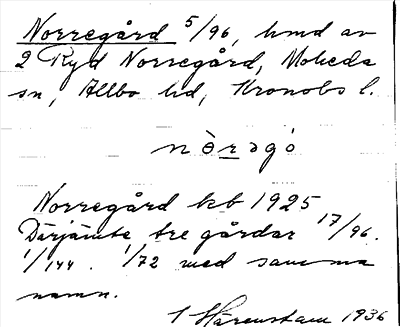 Norregård 5/96, hmd av
2 Ryd Norregård, Moheda
sn, Allbo hd, Kronobs l.
nò̀rəgó
Norregård kb 1925
Därjämte tre gårdar 17/96.
1/144. 1/72 med samma
namn.
Härenstam 1936